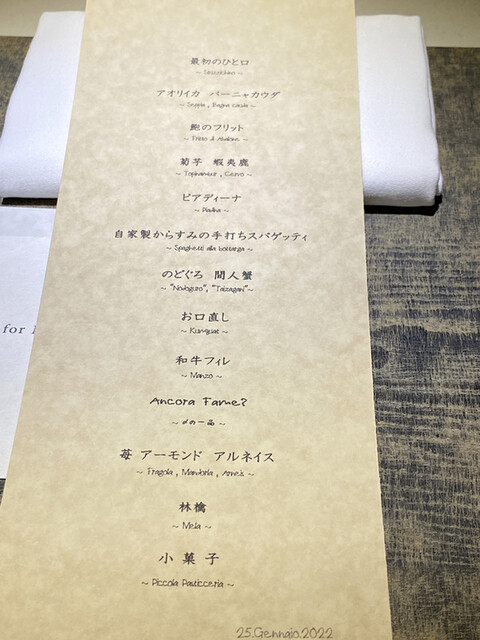 最初のひと口
~ Stuzzichino ~
アオリイカ バーニャカウダ
~ Seppia , Bagna cauda ~
鮑のフリット
~ Fritto di Abalone ~
菊芋 蝦夷鹿
~ Topinambur , Cervo ~
ピアディーナ
~ Piadina ~
自家製からすみの手打ちスパゲッティ
~ Spaghetti alla bottarga ~
のどぐろ 間人蟹
~ "Nodoguro", "Taizagani" ~
お口直し
~ Kumquat ~
和牛フィレ
~ Manzo ~
Ancora Fame?
~ 〆の一品 ~
苺 アーモンド アルネイス
~ Fragola , Mandorla , Arneis ~
林檎
~ Mela ~
小菓子
~ Piccola Pasticceria ~
25.Gennaio.2022
for